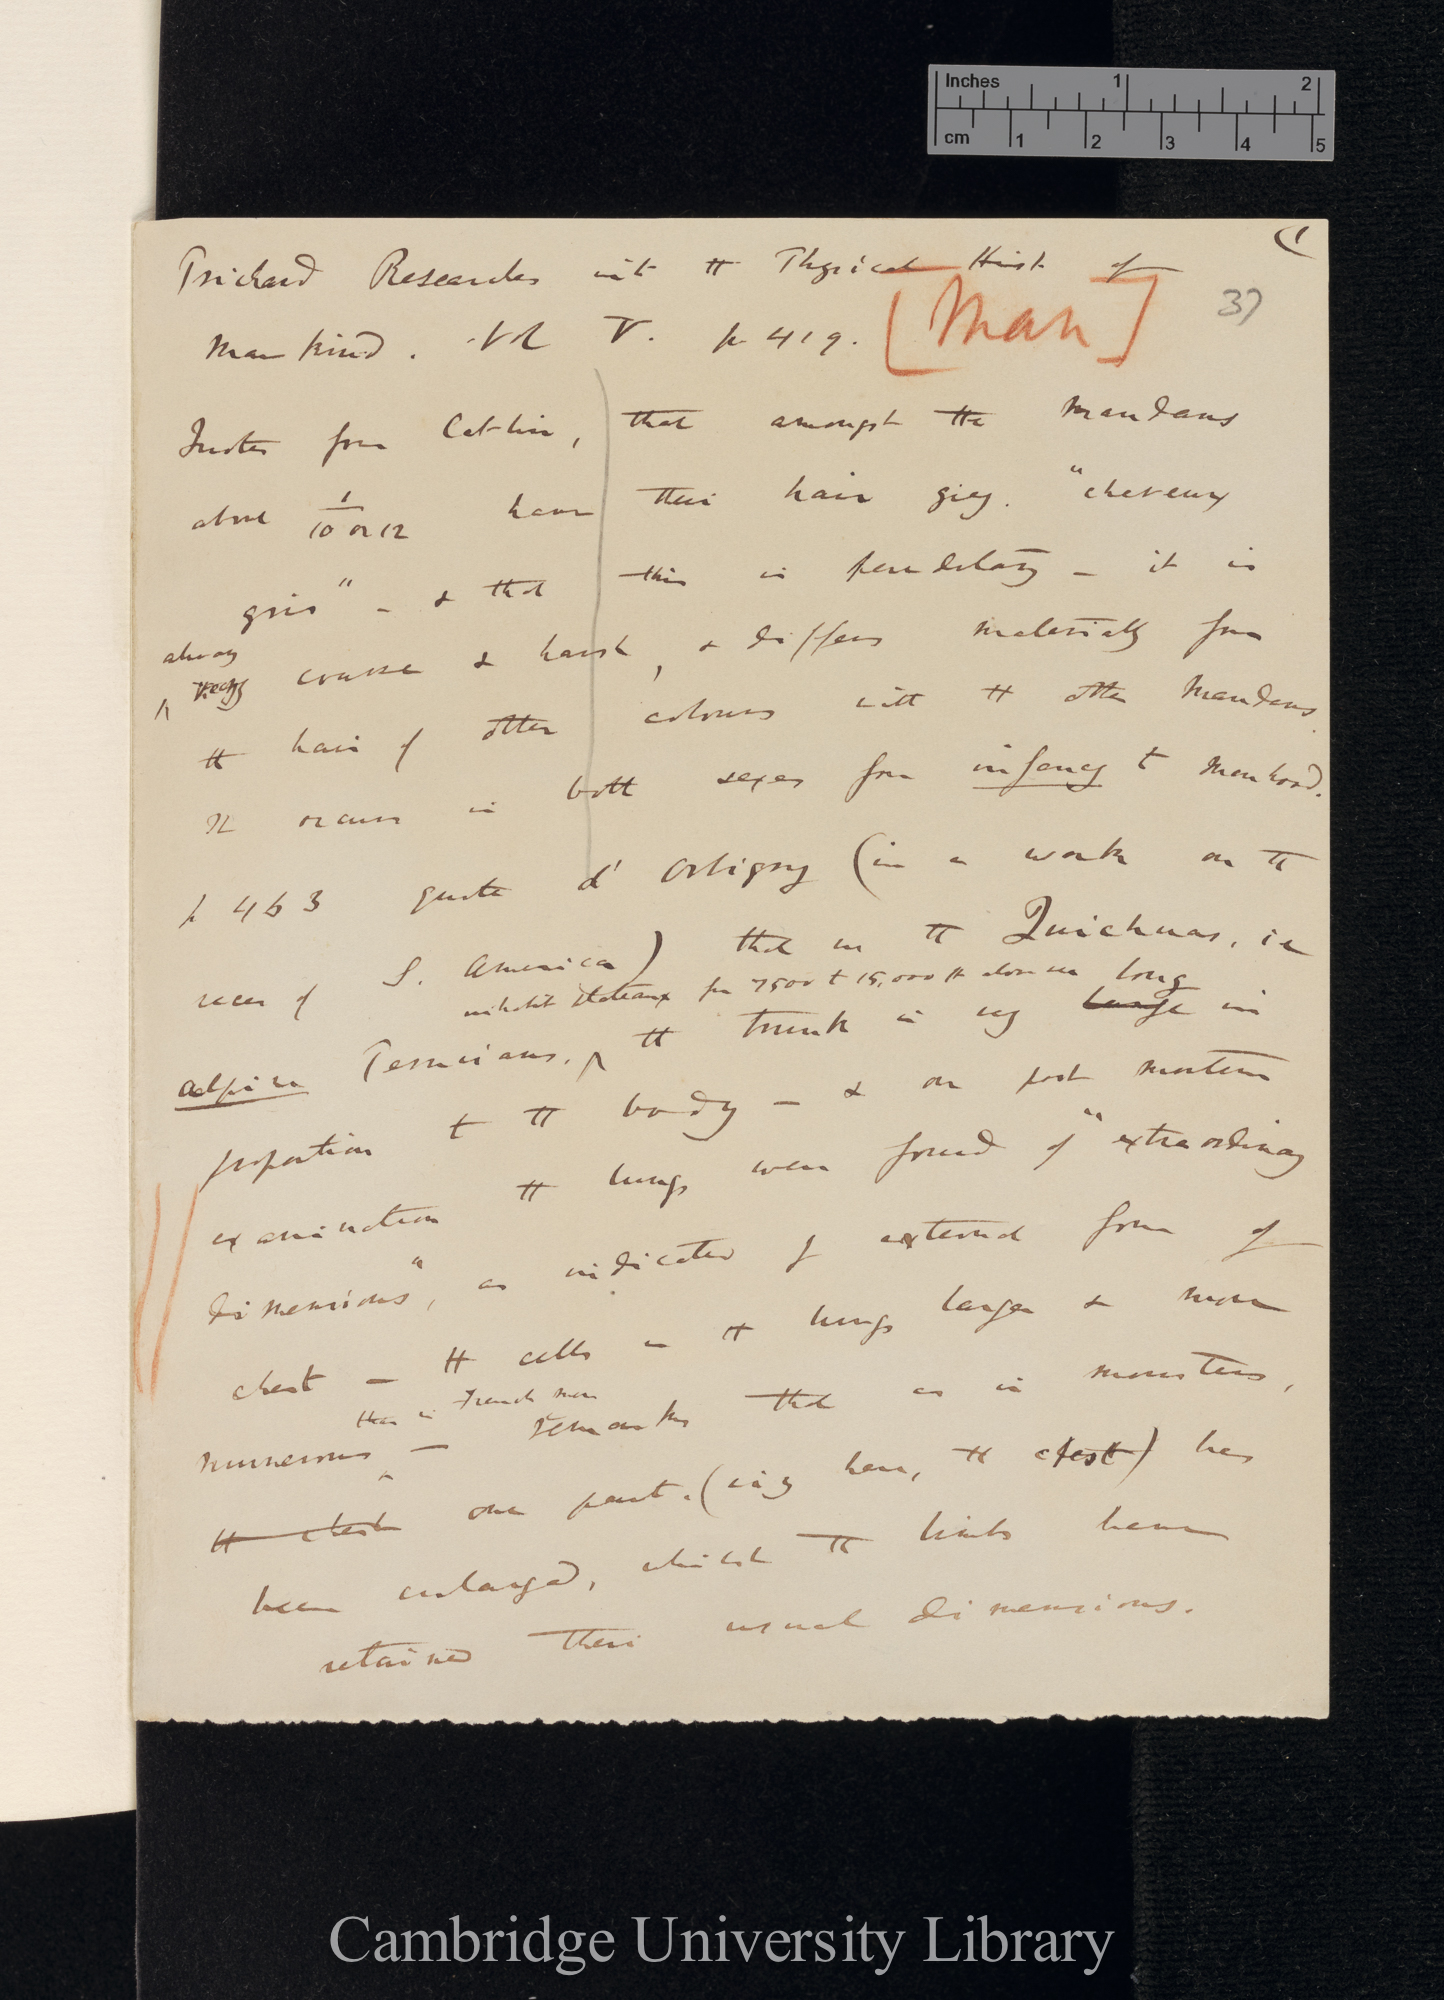 Inches 1 2
cm 1 2 3 4 5
(1
Prichard Researches into the Physical Hist of
37
Mankind. Vol V. p 419. [Man]
Quotes from Catlin, that amongst the Mandans
about 1/10 or 12 have their hair grey. "cheveux
gris" — & that this is hereditary — it is
always
coarse & harsh, & differs materially from
the hair of other colours with the other Mandans.
It occurs in both sexes from infancy to manhood.
p 463 quote d'Orbigny (in a work on the
races of S. America) that in the Quichuas, ie
inhabit Plateaux from 7500 to 15,000 ft above sea long
alpine Peruvians, ^ the trunk is very large in
proportion to the body — & on post mortem
examination the lungs were found of "extraordinary
dimensions", as indicated by external form of
chest — the cells in the lungs larger & more
than in French man
numerous ^ — remarks that as in monsters,
the chest one part. (viz here, the chest) has
been enlarged, whilst the limbs have
retained their usual dimensions.
Cambridge University Library